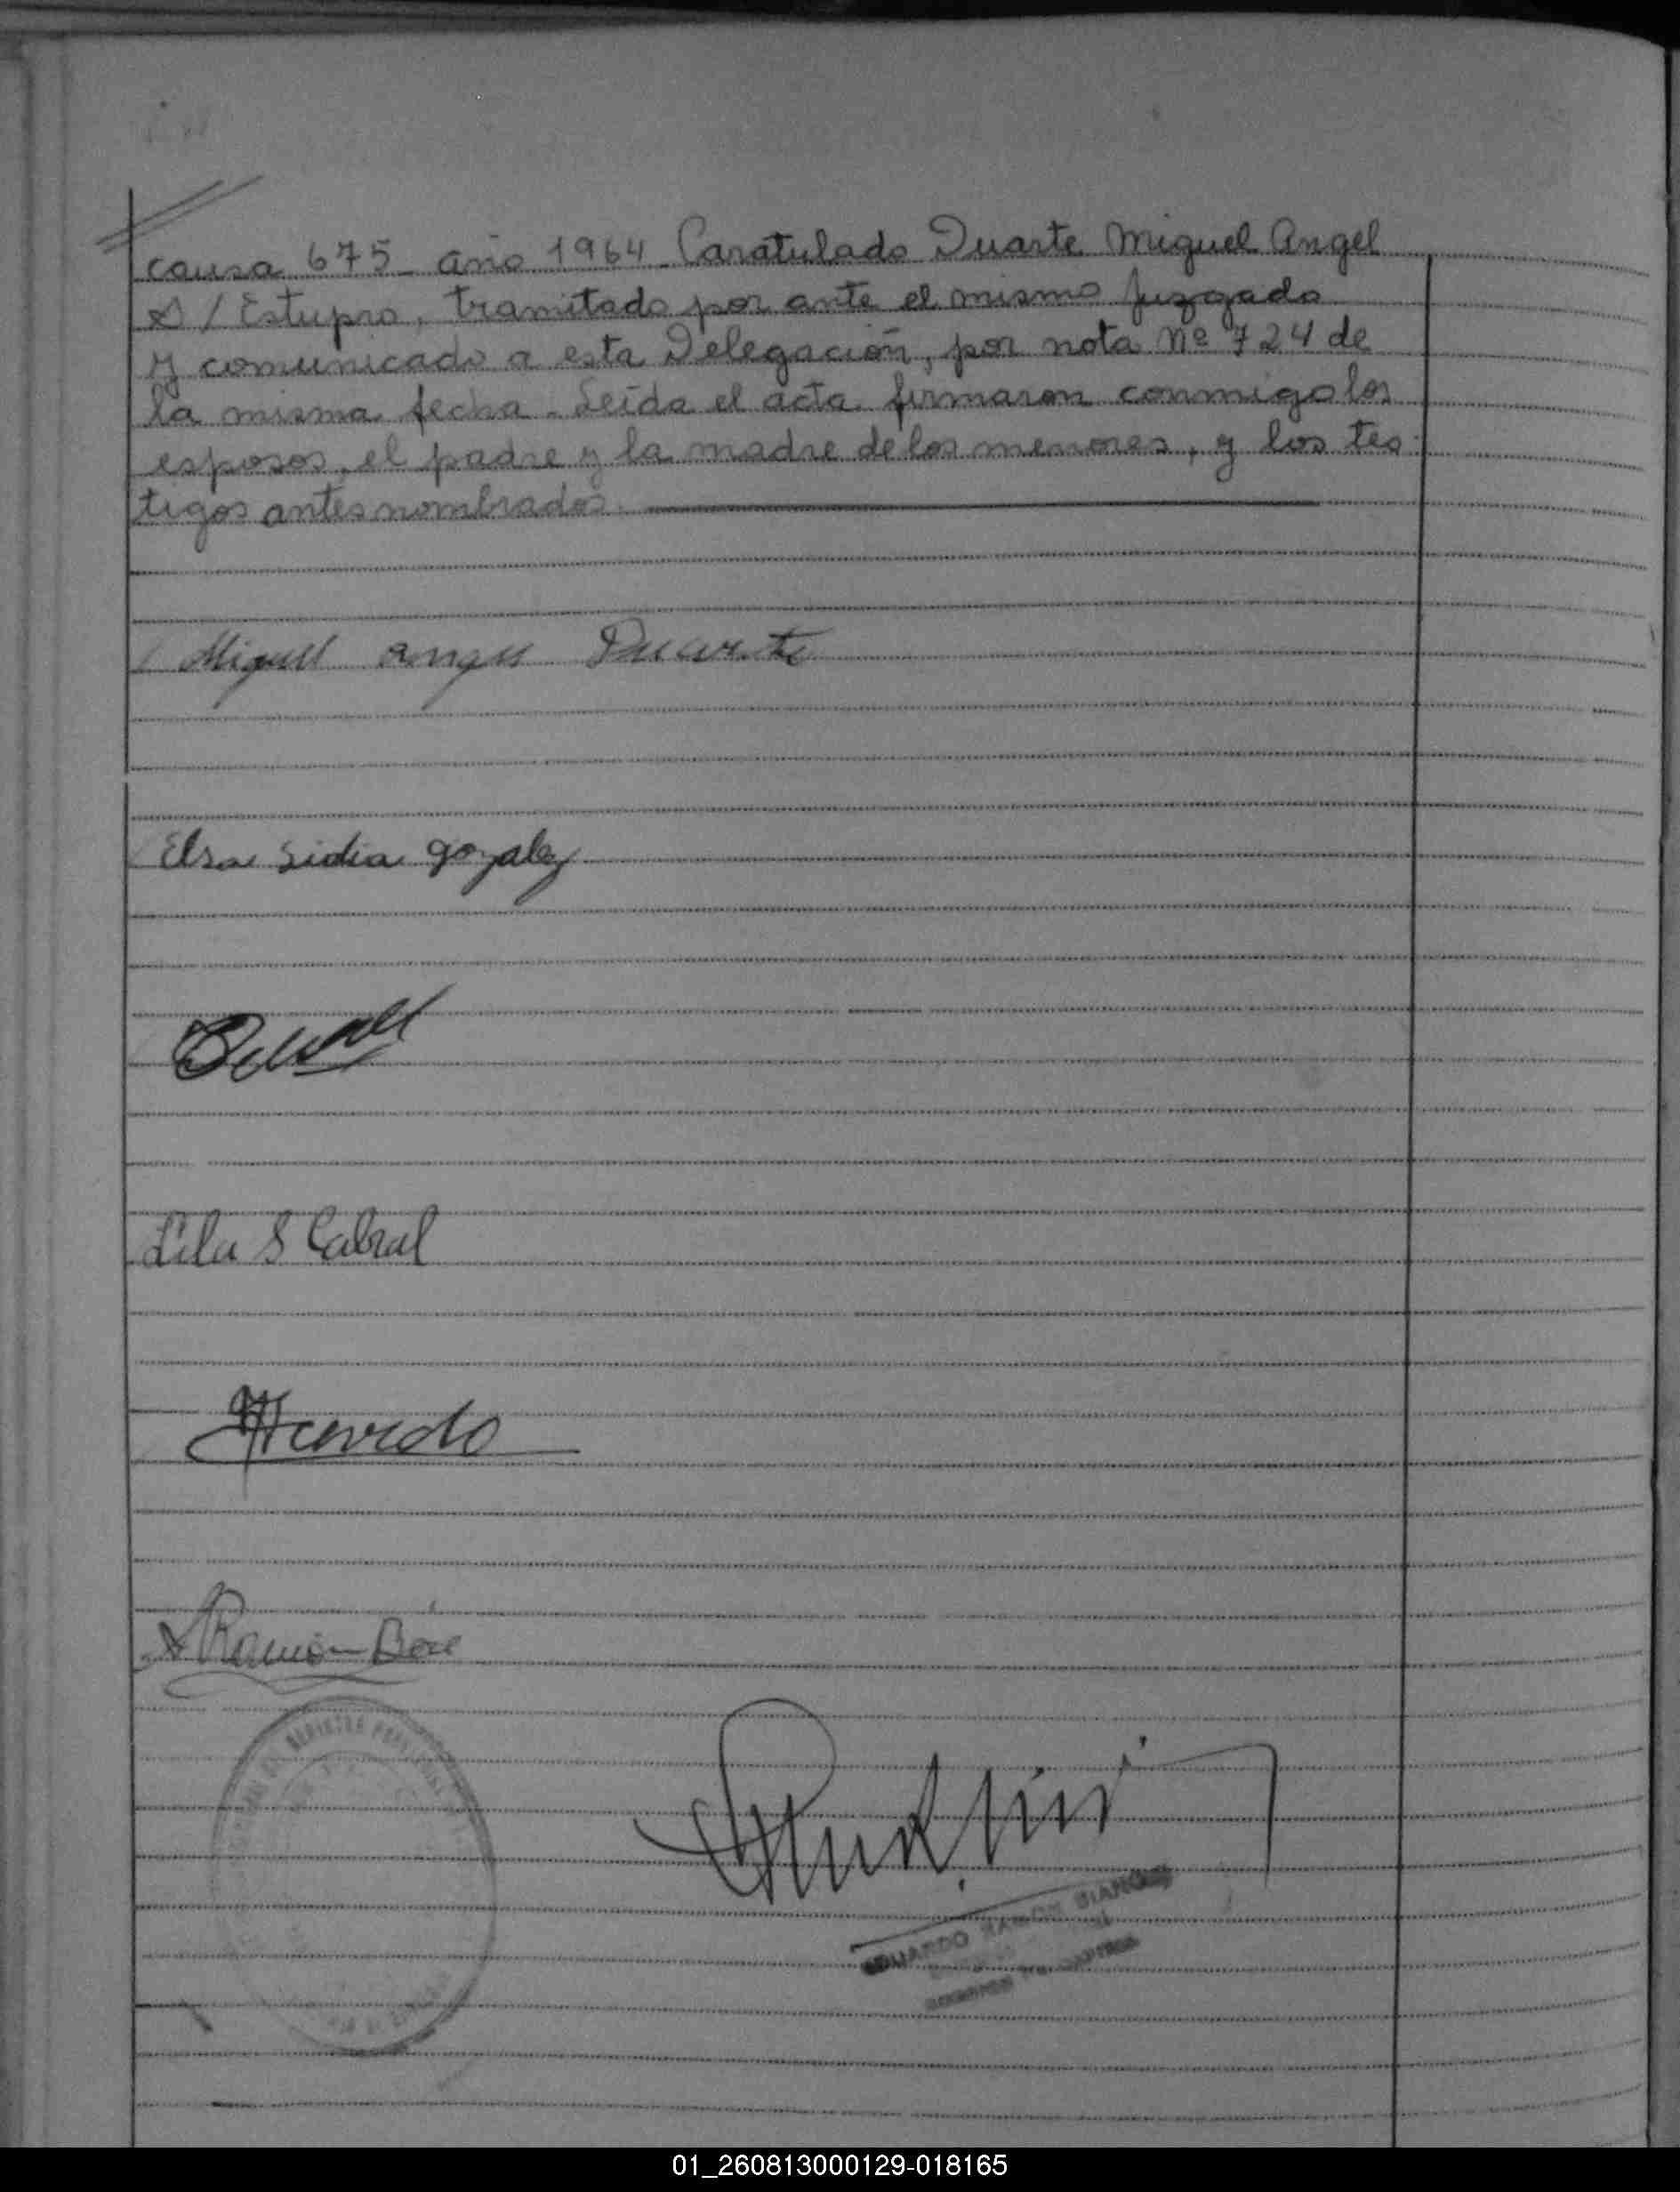 causa 675 año 1964 Caratulado Duarte Miguel Angel
S/Estupro, tramitado por ante el mismo Juzgado
y comunicado a esta Delegación, por nota Nº 724 de
la misma fecha. Leída el acta firmaron conmigo los
esposos, el padre y la madre de los menores, y los tes-
tigos antes nombrados.
Miguel angel Duarte
Elsa Lidia gozalez
Lila S Cabral
Acevedo
Ramón
EDUARDO RAMON
01_260813000129-018165